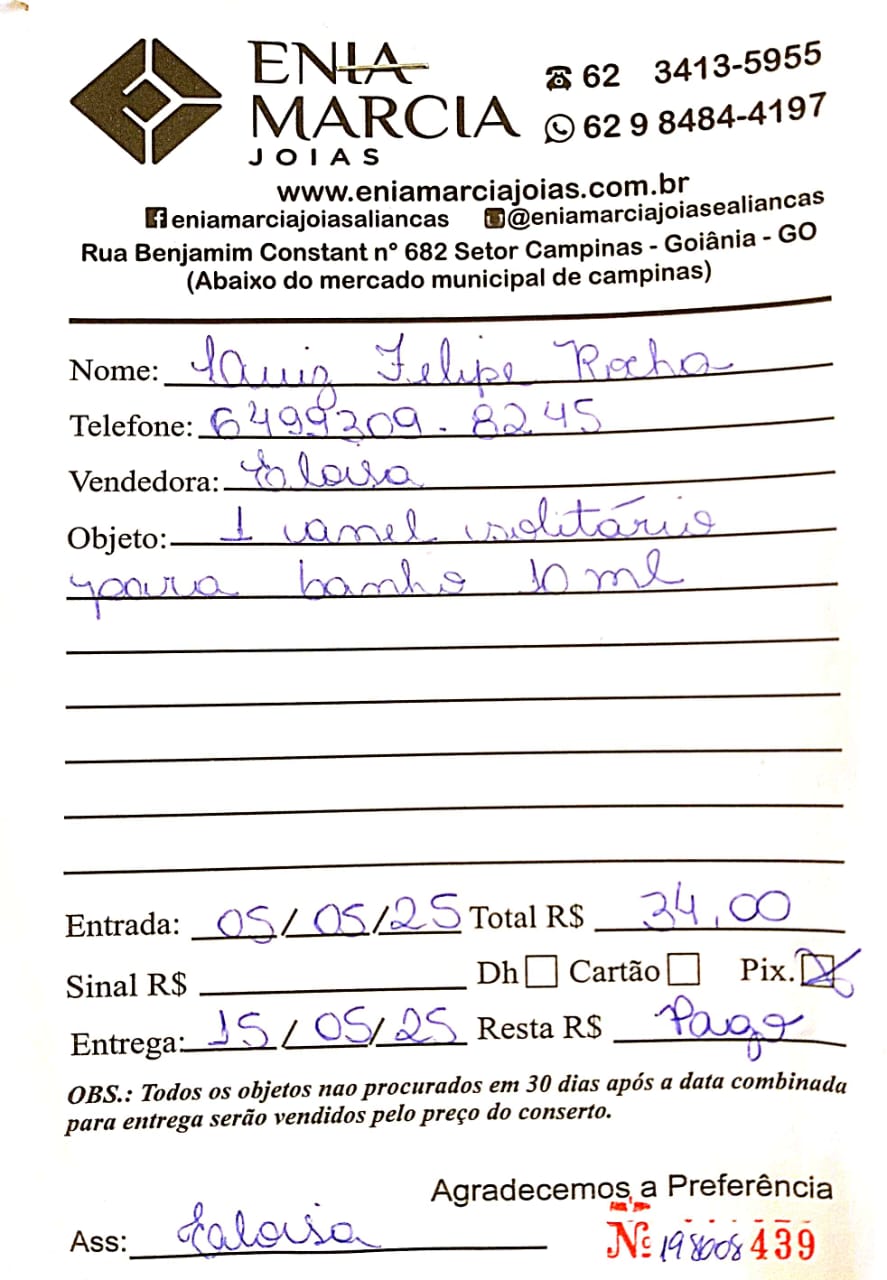 ENIA
MARCIA
JOIAS
62 3413-5955
62 9 8484-4197
www.eniamarciajoias.com.br
eniamarciajoiasaliancas @eniamarciajoiasealiancas
Rua Benjamim Constant n° 682 Setor Campinas - Goiânia - GO
(Abaixo do mercado municipal de campinas)
Nome: Luiz Felipe Rocha
Telefone: 6499309-8245
Vendedora: Eloisa
Objeto: 1 anel solitário
para banho 10 ml
Entrada: 05/05/25 Total R$ 34,00
Sinal R$ Dh Cartão Pix.
Entrega: 15/05/25 Resta R$ Pago
OBS.: Todos os objetos nao procurados em 30 dias após a data combinada
para entrega serão vendidos pelo preço do conserto.
Agradecemos a Preferência
Ass: Eloisa Nº 439